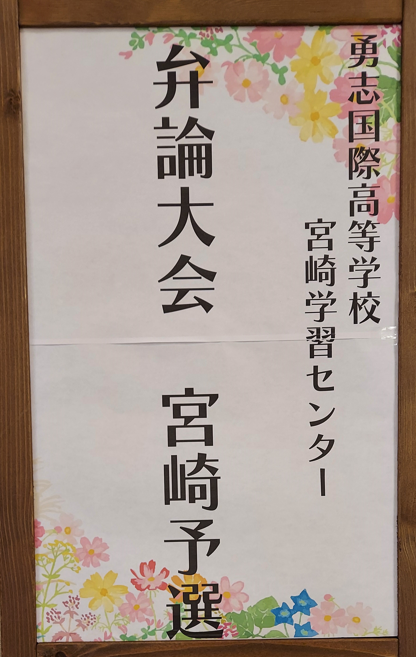 勇志国際高等学校
宮崎学習センター
弁論大会 宮崎予選